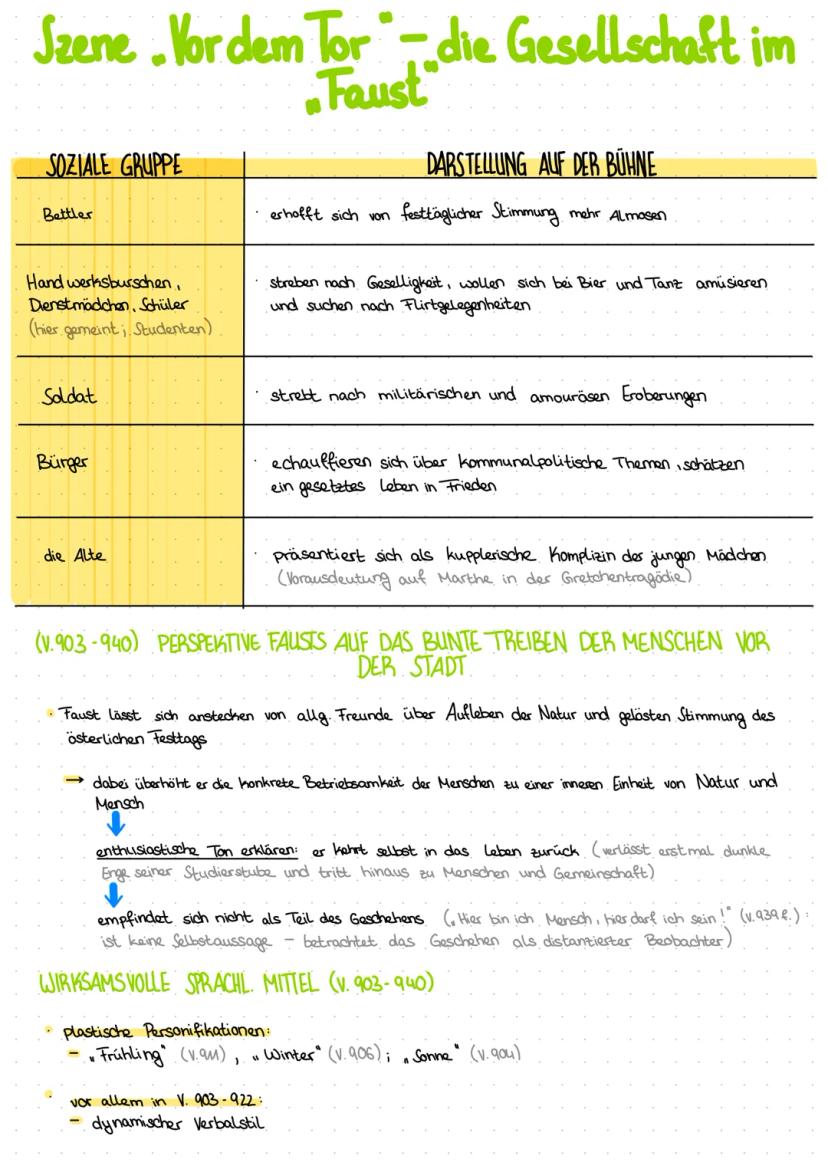 Szene „Vor dem Tor" – die Gesellschaft im
„Faust"
SOZIALE GRUPPE
DARSTELLUNG AUF DER BÜHNE
Bettler
· erhofft sich von festtäglicher Stimmung mehr Almosen
Handwerksburschen,
Dienstmädchen, Schüler
(hier gemeint; Studenten)
· streben nach Geselligkeit, wollen sich bei Bier und Tanz amüsieren
und suchen nach Flirtgelegenheiten
Soldat
· strebt nach militärischen und amourösen Eroberungen
Bürger
· echauffieren sich über kommunalpolitische Themen, schätzen
ein gesetztes Leben in Frieden
die Alte
· präsentiert sich als kupplerische Komplizin der jungen Mädchen
(Vorausdeutung auf Marthe in der Gretchentragödie)
(V. 903 - 940) PERSPEKTIVE FAUSTS AUF DAS BUNTE TREIBEN DER MENSCHEN VOR
DER STADT
• Faust lässt sich anstecken von allg. Freunde über Aufleben der Natur und gelösten Stimmung des
österlichen Festtags
→ dabei überhöht er die konkrete Betriebsamkeit der Menschen zu einer inneren Einheit von Natur und
Mensch
enthusiastische Ton erklären: er kehrt selbst in das Leben zurück (verlässt erstmal dunkle
Enge seiner Studierstube und tritt hinaus zu Menschen und Gemeinschaft)
empfindet sich nicht als Teil des Geschehens („Hier bin ich Mensch, hier darf ich sein!" (V. 939 f.):
ist keine Selbstaussage – betrachtet das Geschehen als distantierter Beobachter)
WIRKSAMSVOLLE SPRACHL. MITTEL (V. 903 - 940)
• plastische Personifikationen:
– „Frühling" (V. 911), „Winter" (V. 906); „Sonne" (V. 904)
• vor allem in V. 903 - 922:
– dynamischer Verbalstil